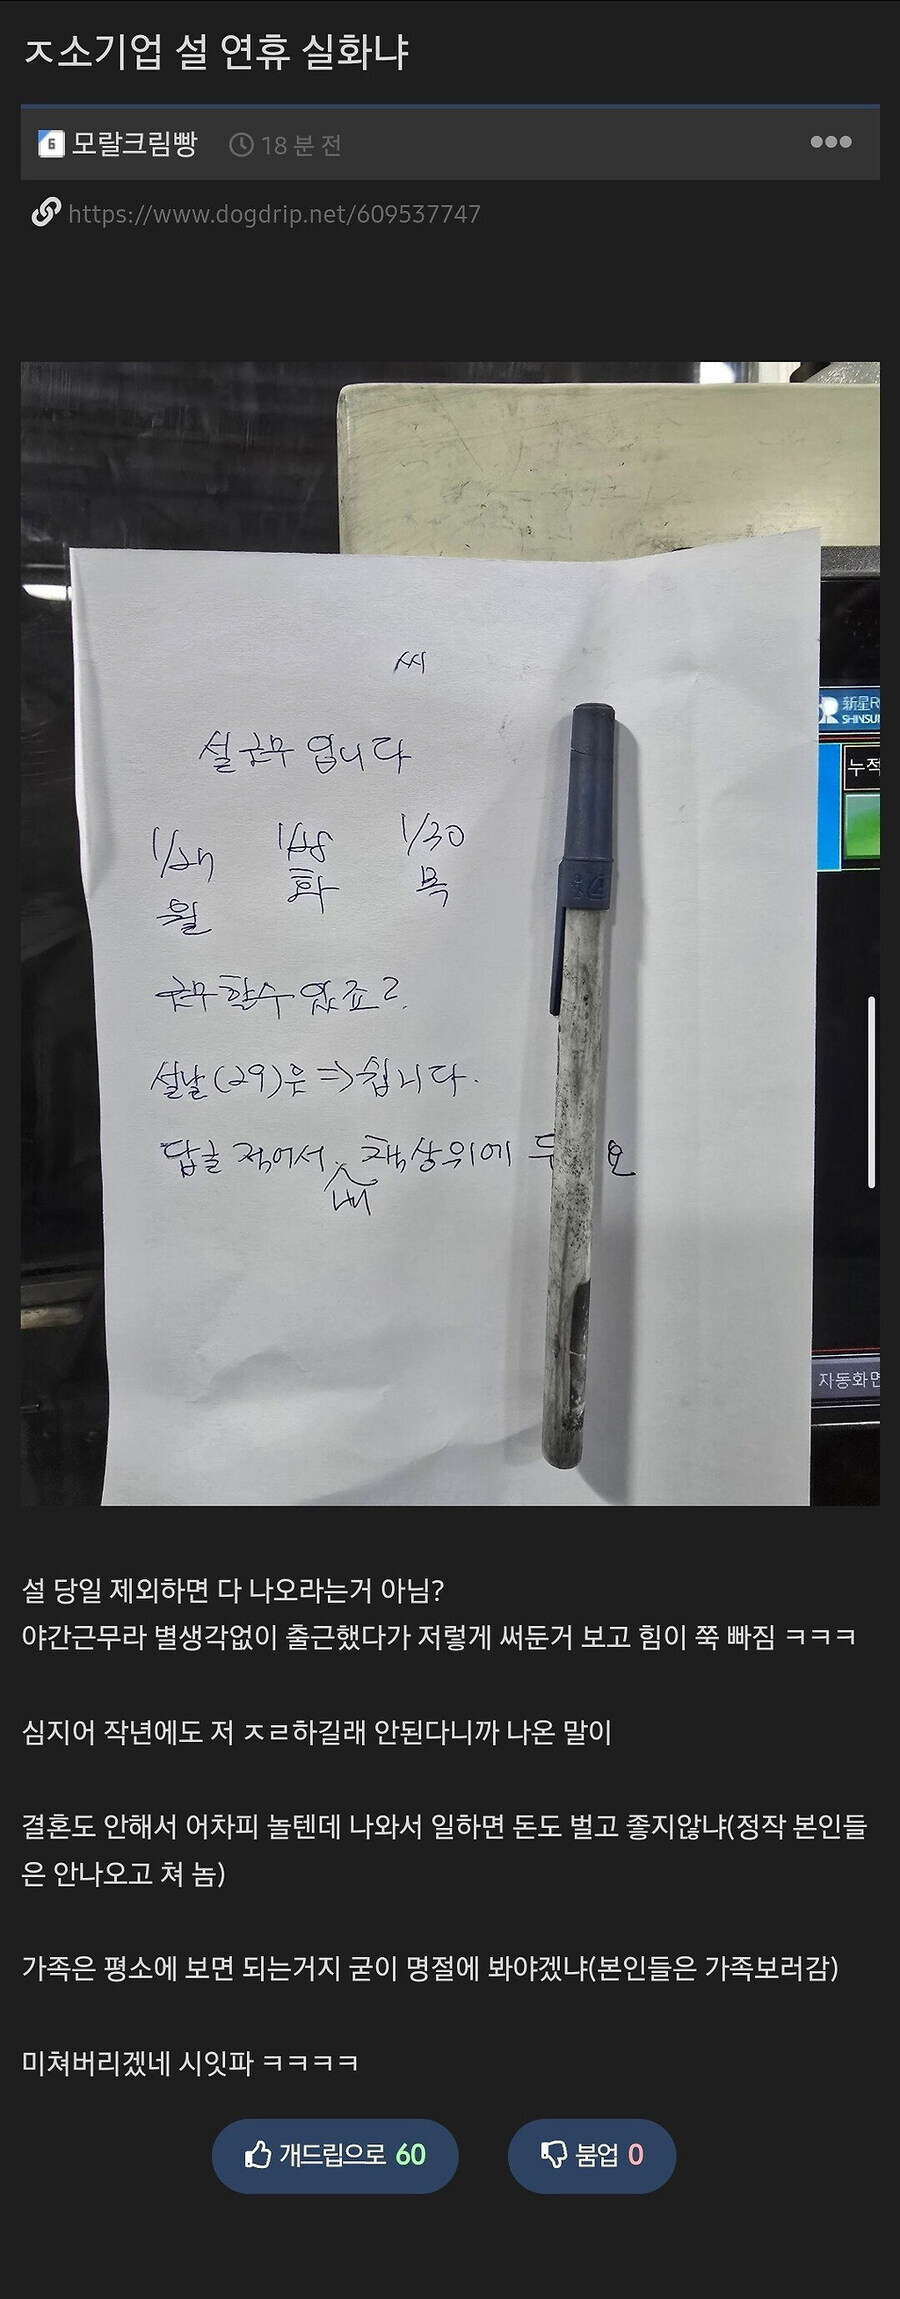 ㅈ소기업 설 연휴 실화냐
모랄크림빵 18 분 전
https://www.dogdrip.net/609537747
씨
설 근무 입니다
1/27 1/28 1/30
월 화 목
근무 할수 있죠?
설날(29)은 => 쉽니다.
답글 적어서 내 책상위에
新星
SHINSU
누적
자동화면
설 당일 제외하면 다 나오라는거 아님?
야간근무라 별생각없이 출근했다가 저렇게 써둔거 보고 힘이 쭉 빠짐 ㅋㅋㅋ
심지어 작년에도 저 ㅈㄹ하길래 안된다니까 나온 말이
결혼도 안해서 어차피 놀텐데 나와서 일하면 돈도 벌고 좋지않냐(정작 본인들
은 안나오고 쳐 놈)
가족은 평소에 보면 되는거지 굳이 명절에 봐야겠냐(본인들은 가족보러감)
미쳐버리겠네 시잇파 ㅋㅋㅋㅋ
개드립으로 60 붐업 0